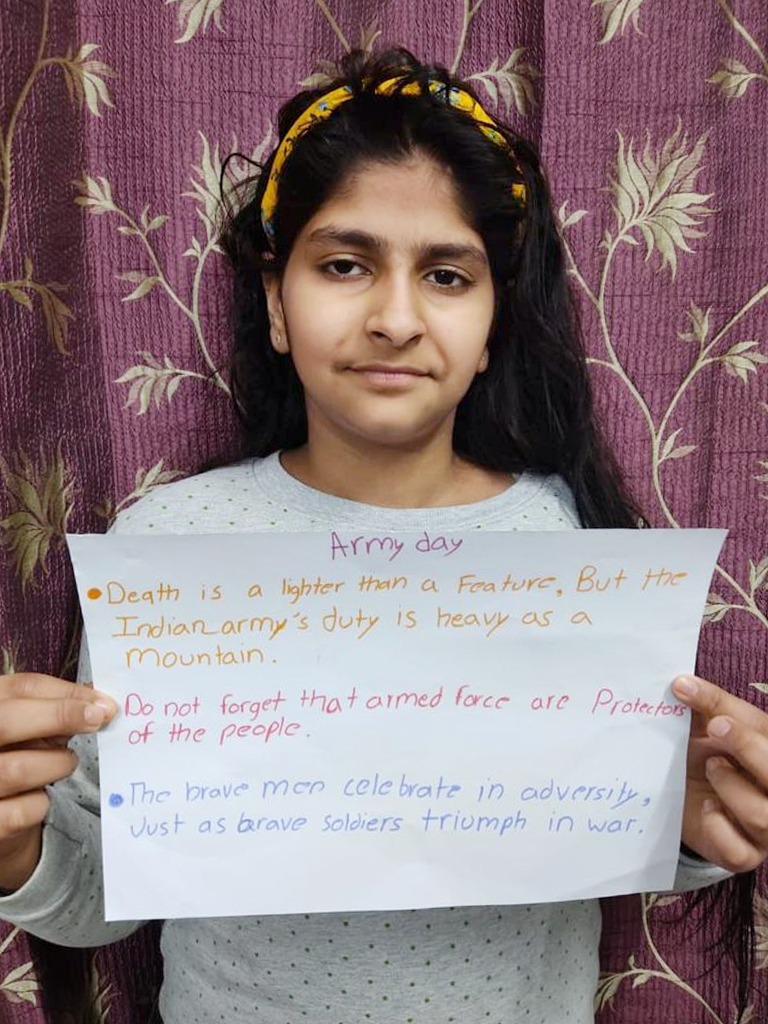 Army day
Death is a lighter than a Feature, But the
Indian army's duty is heavy as a
mountain.
Do not forget that armed force are Protectors
of the people.
The brave men celebrate in adversity,
Just as brave soldiers triumph in war.